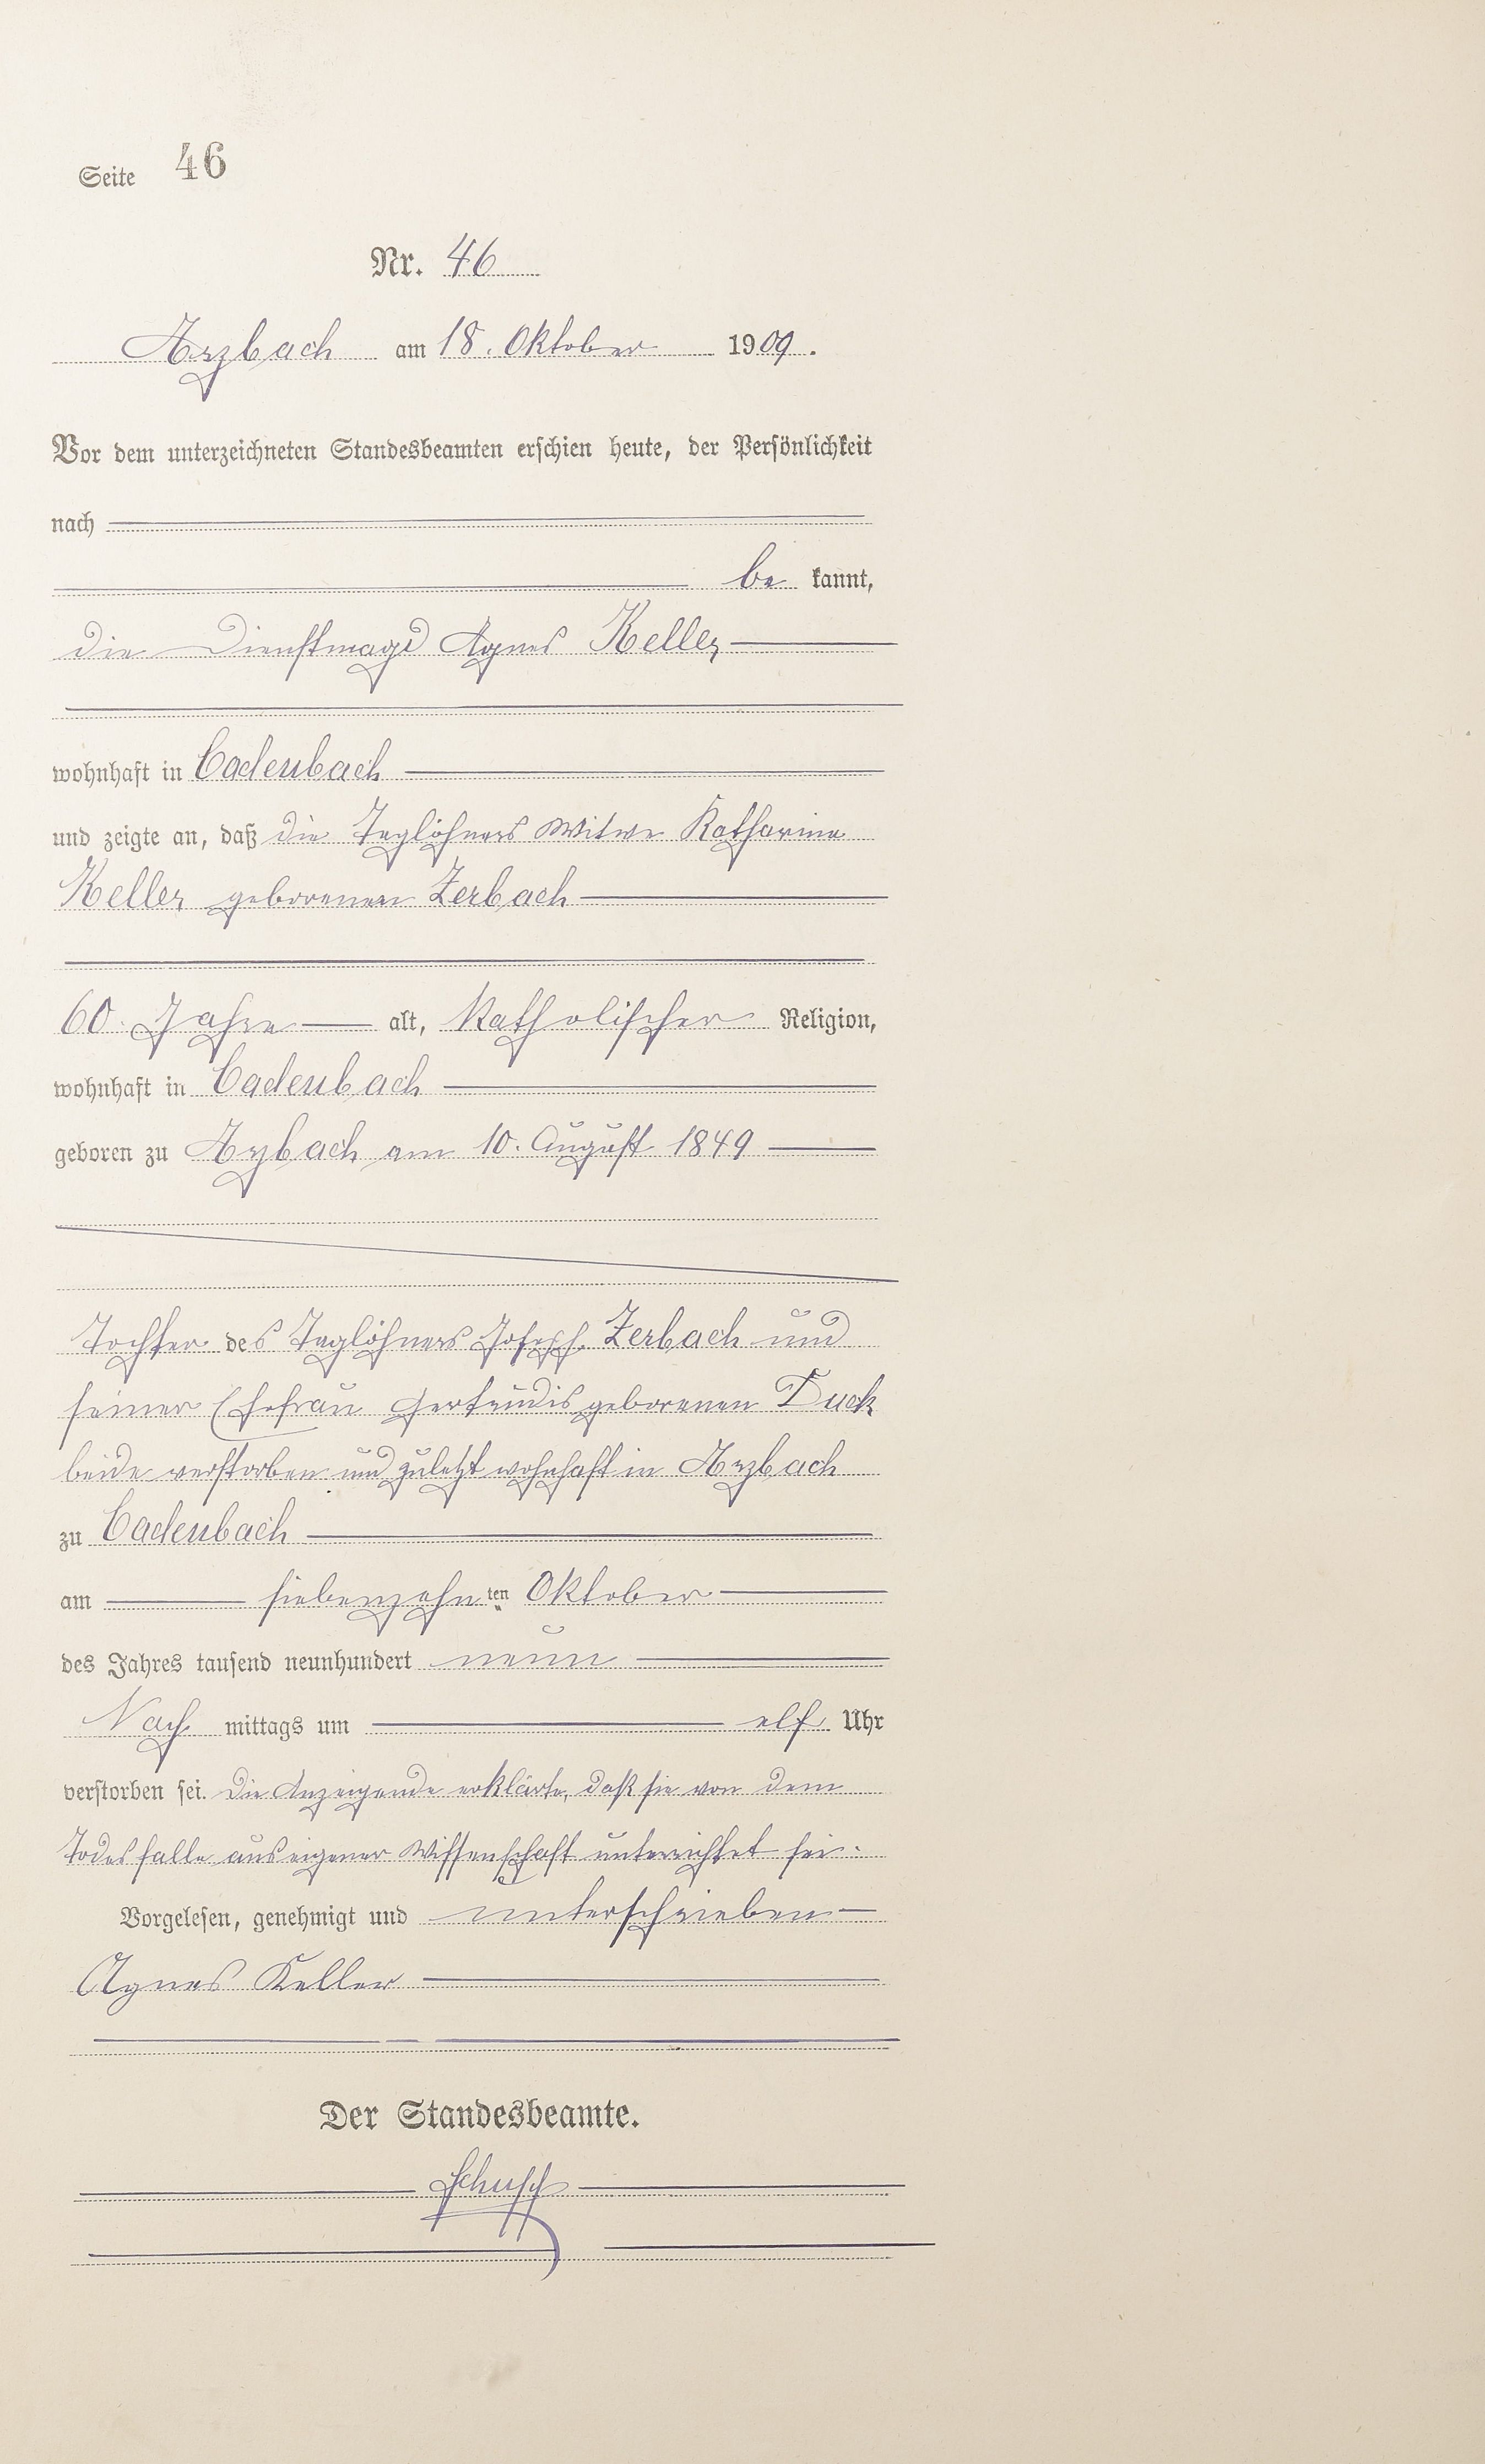 Seite 46
Nr. 46
Arzbach am 18. Oktober 1909.
Vor dem unterzeichneten Standesbeamten erschien heute, der Persönlichkeit
nach
be kannt,
die Dienstmagd Agnes Keller
wohnhaft in Cadenbach
und zeigte an, daß die Taglöhners Witwe Katharina
Keller geborenen Zerbach
60 Jahre alt, katholischer Religion,
wohnhaft in Cadenbach
geboren zu Arzbach am 10. August 1849
Tochter des Taglöhners Joseph Zerbach und
seiner Ehefrau Gertrudis geborenen Duck
beide verstorben und zuletzt wohnhaft in Arzbach
zu Cadenbach
am siebenzehnten Oktober
des Jahres tausend neunhundert neun
Nach mittags um elf Uhr
verstorben sei. Die Anzeigende erklärte, daß sie von dem
Todesfalle aus eigener Wissenschaft unterrichtet sei.
Vorgelesen, genehmigt und unterschrieben
Agnes Keller
Der Standesbeamte.